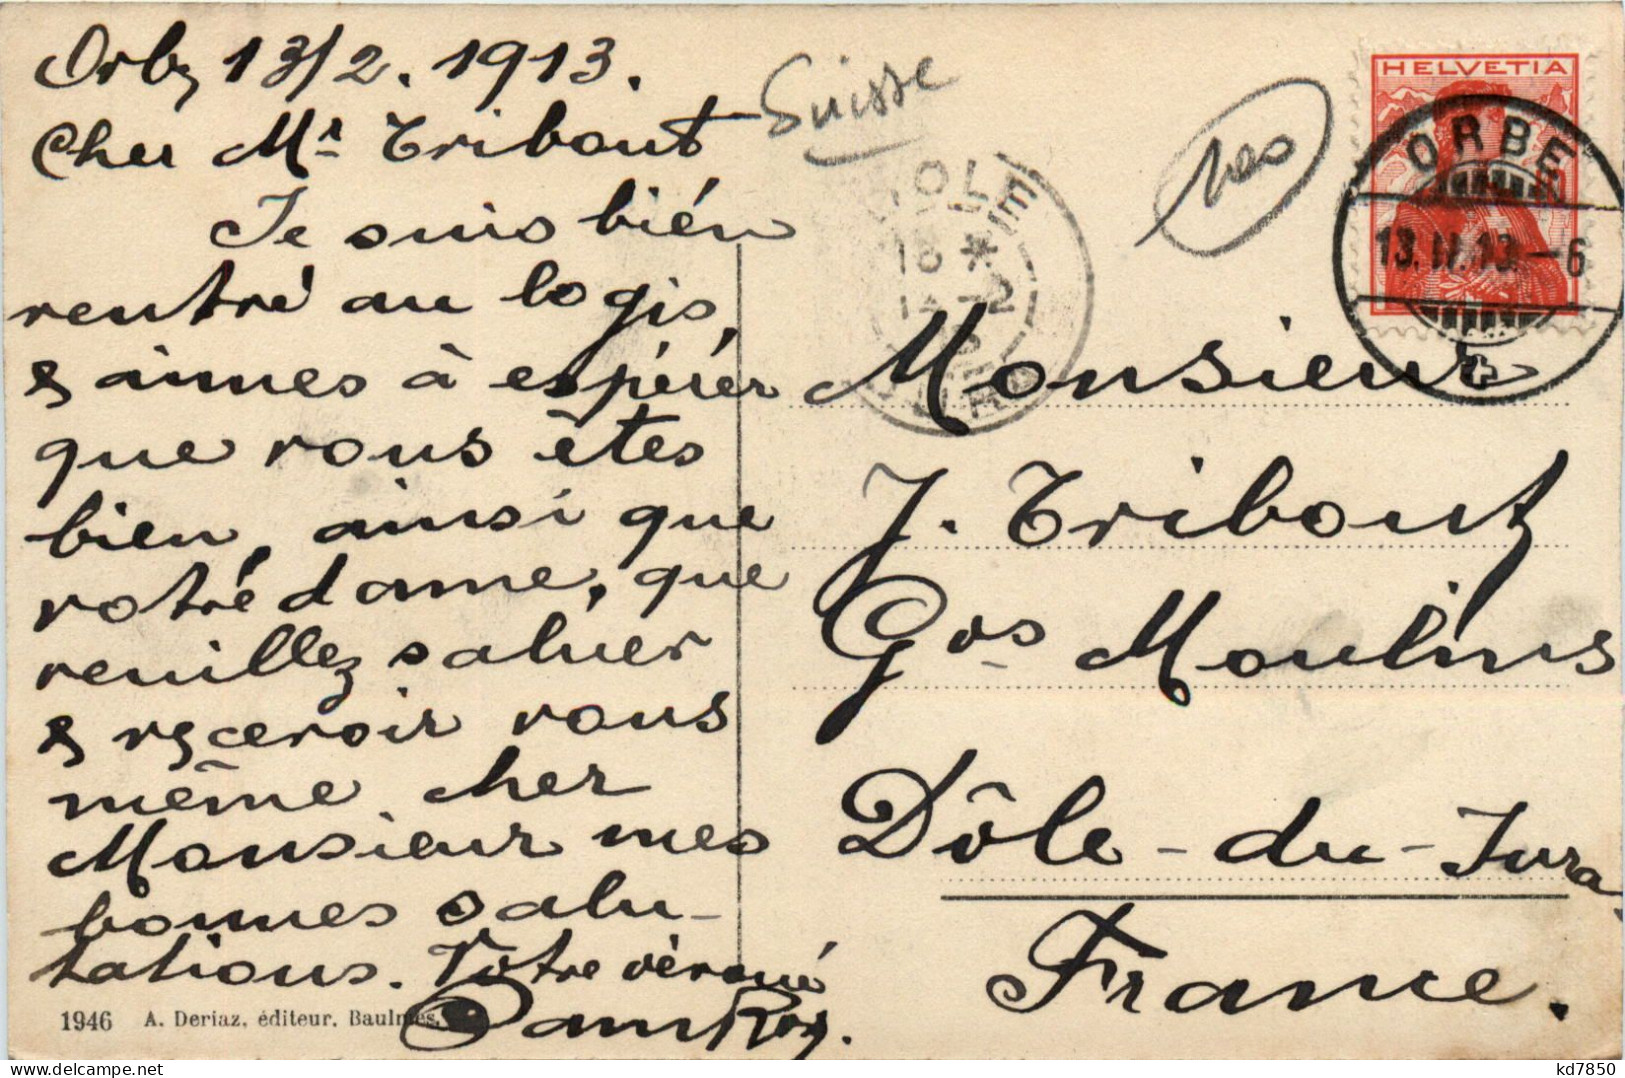 Orbe, 13/2. 1913.
Cher Mr Tribout
Je suis bién
rentré au logis,
& àimes à espérér
que vous êtes
bien, ainsi que
votré dame, que
veuillez saluer
& recevoir vous
même, cher
Monsieur mes
bonnes salu-
tations. Votre dévoué
Suisse
HELVETIA
ORBE
13.II.13.-6
DOLE
18 *
14-2
13
JURA
Monsieur
J. Tribout
Gds Moulins
Dôle-du-Jura
France.
1946 A. Deriaz, éditeur. Baulmes.
kd7850